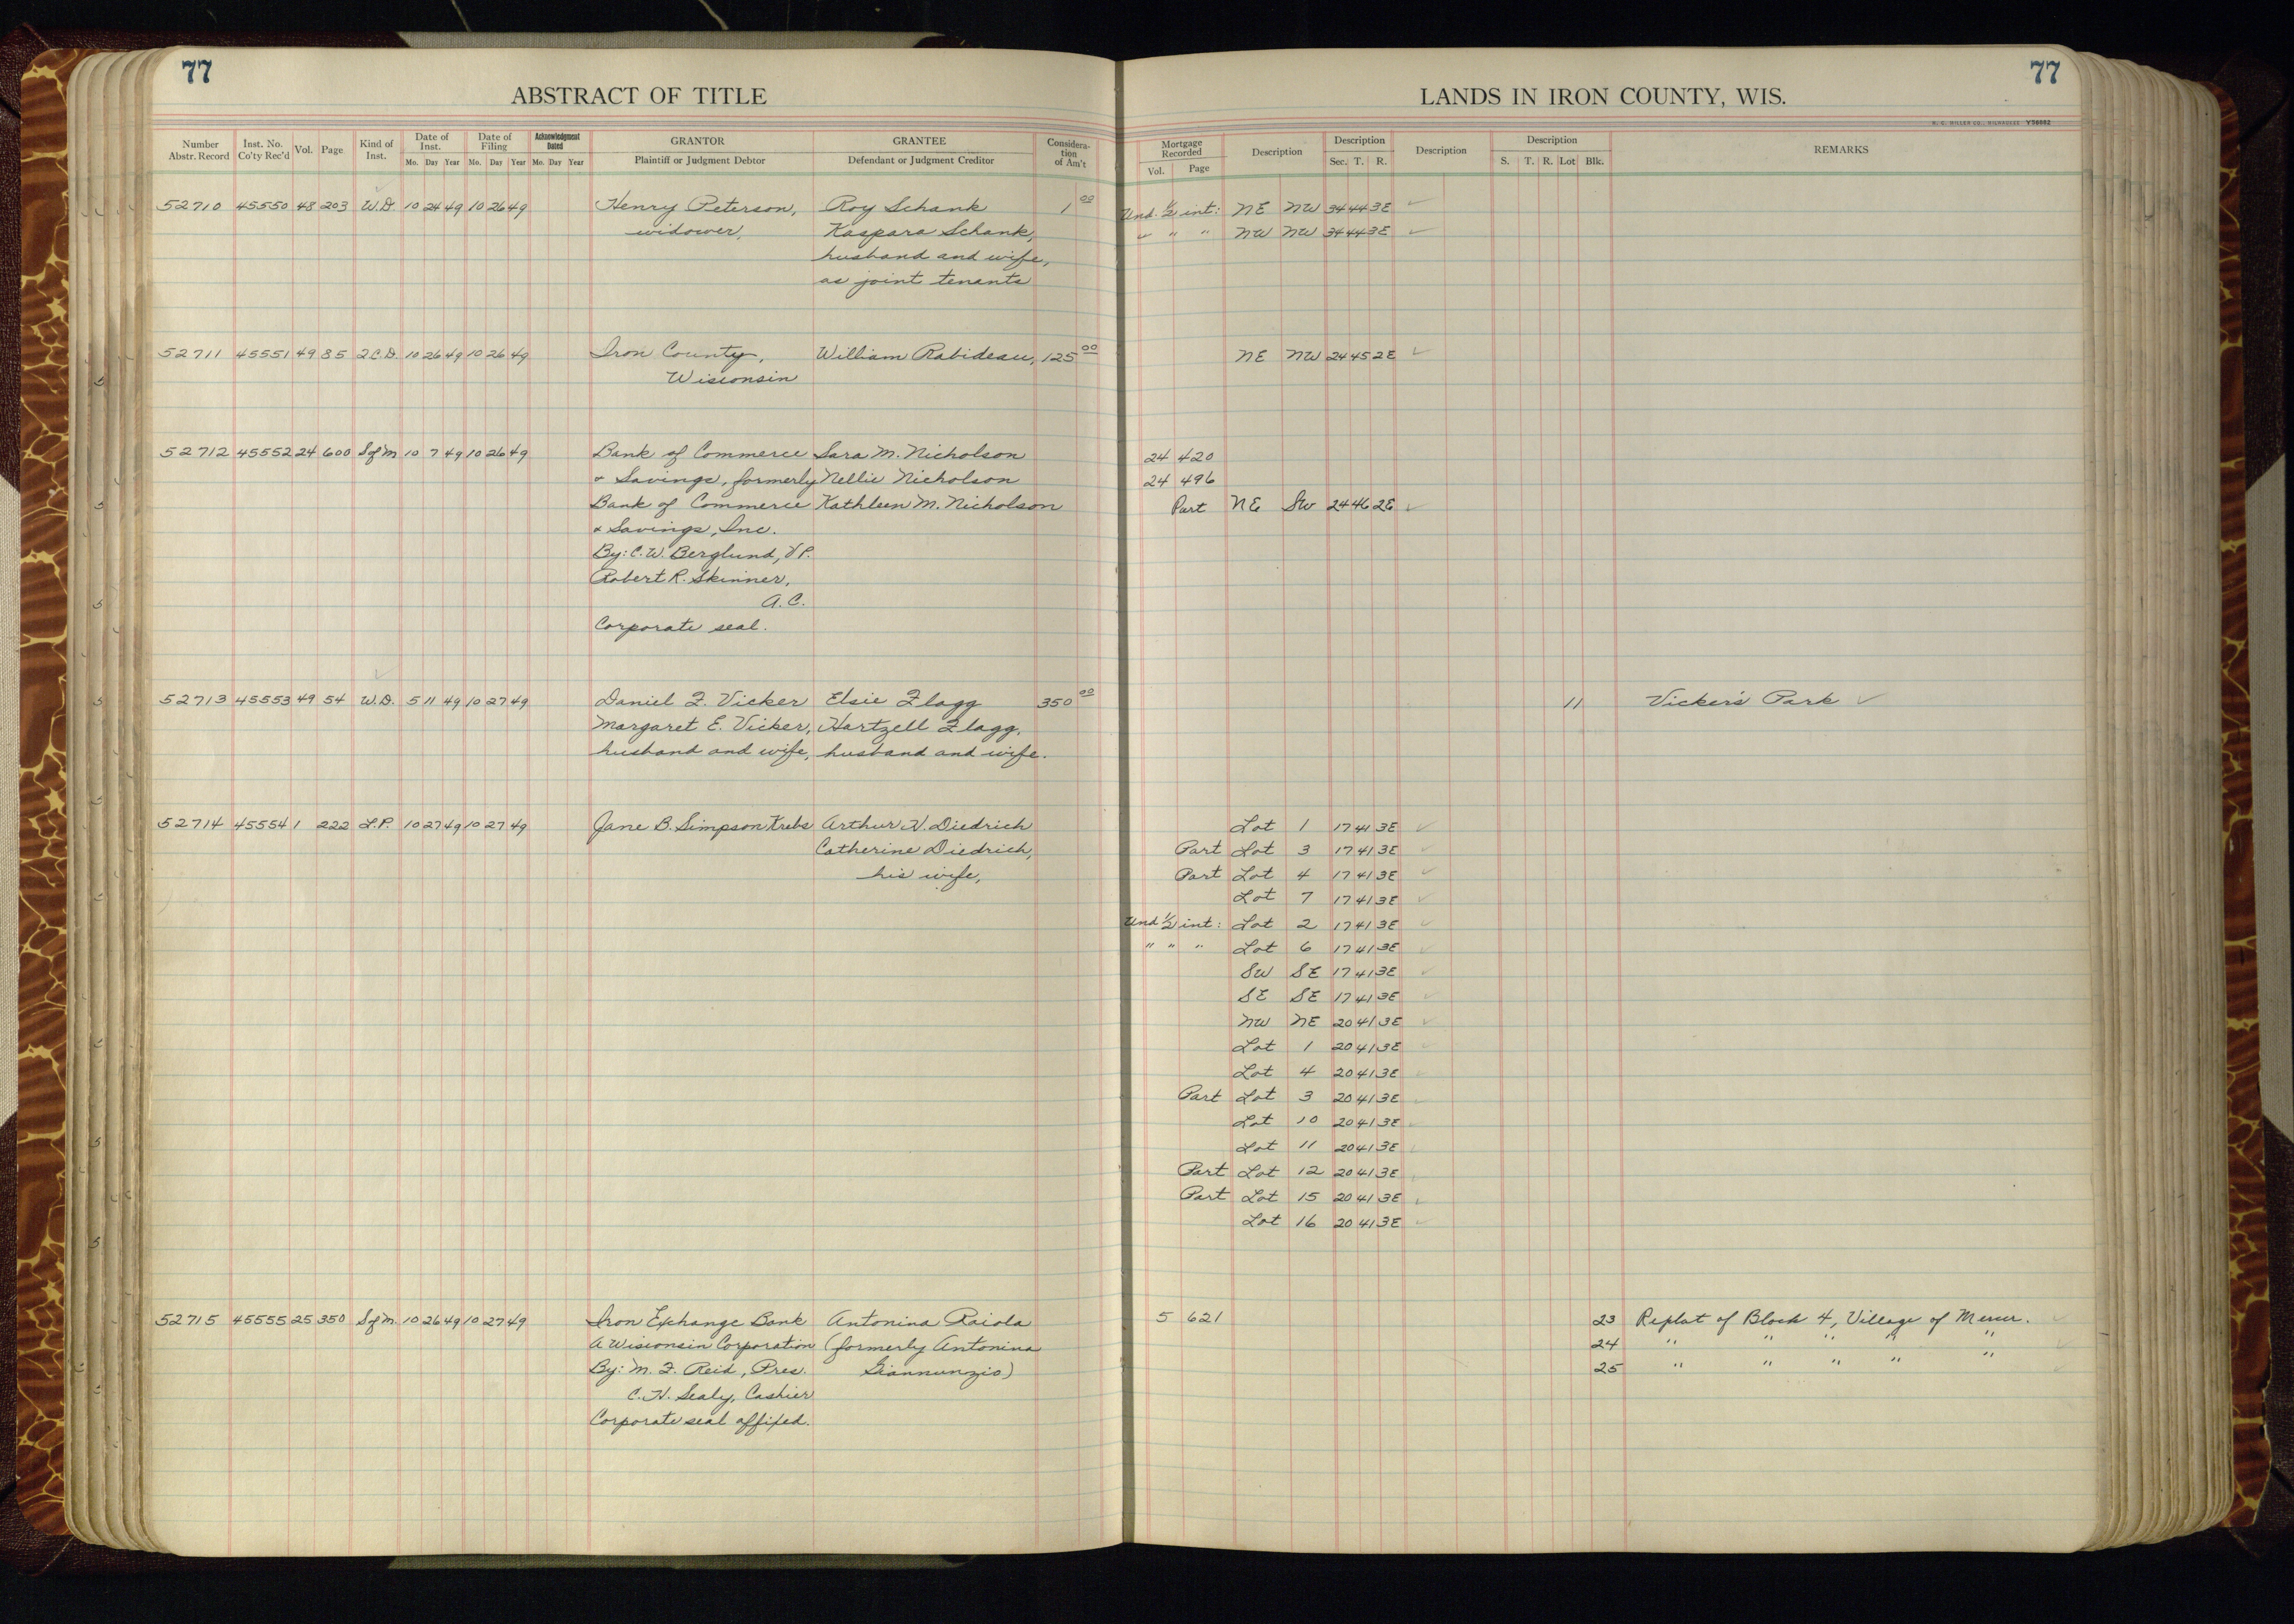 77
ABSTRACT OF TITLE
Number Abstr. Record | Inst. No. Co'ty Rec'd | Vol. | Page | Kind of Inst. | Date of Inst. Mo. Day Year | Date of Filing Mo. Day Year | Acknowledgment Dated Mo. Day Year | GRANTOR Plaintiff or Judgment Debtor | GRANTEE Defendant or Judgment Creditor | Consideration of Am't
52710 45550 48 203 W.D. 10 24 49 10 26 49 Henry Peterson, Roy Schank 1 00
widower, Kaspara Schank,
husband and wife,
as joint tenants
52711 45551 49 85 2.C.D. 10 26 49 10 26 49 Iron County, William Rabideau, 125 00
Wisconsin
52712 45552 24 600 S of M 10 7 49 10 26 49 Bank of Commerce Sara M. Nicholson
& Savings, formerly Nellie Nicholson
Bank of Commerce Kathleen M. Nicholson
& Savings, Inc.
By: C.W. Berglund, V P.
Robert R. Skinner,
A.C.
Corporate seal.
52713 45553 49 54 W.D. 5 11 49 10 27 49 Daniel F. Vicker Elsie Flagg 350 00
Margaret E. Vicker, Hartzell Flagg,
husband and wife, husband and wife.
52714 45554 1 222 L.P. 10 27 49 10 27 49 Jane B. Simpson Krebs Arthur H. Diedrich
Catherine Diedrich,
his wife,
52715 45555 25 350 S of M. 10 26 49 10 27 49 Iron Exchange Bank Antonina Raiola
A Wisconsin Corporation (formerly Antonina
By: M. F. Reid, Pres. Giannunzio)
C. H. Sealy, Cashier
Corporate seal affixed.
77
LANDS IN IRON COUNTY, WIS.
H. C. MILLER CO., MILWAUKEE Y56082
Mortgage Recorded Vol. Page | Description | Description Sec. T. R. | Description | Description S. T. R. Lot Blk. | REMARKS
Und. 1/2 int: NE NW 34 44 3E ✓
" " " NW NW 34 44 3E ✓
NE NW 24 45 2E ✓
24 420
24 496
Part NE SW 24 46 2E ✓
11 Vicker's Park ✓
Lot 1 17 41 3E ✓
Part Lot 3 17 41 3E ✓
Part Lot 4 17 41 3E ✓
Lot 7 17 41 3E ✓
Und 1/2 int: Lot 2 17 41 3E ✓
" " " Lot 6 17 41 3E ✓
SW SE 17 41 3E ✓
SE SE 17 41 3E ✓
NW NE 20 41 3E ✓
Lot 1 20 41 3E ✓
Lot 4 20 41 3E ✓
Part Lot 3 20 41 3E ✓
Lot 10 20 41 3E ✓
Lot 11 20 41 3E ✓
Part Lot 12 20 41 3E ✓
Part Lot 15 20 41 3E ✓
Lot 16 20 41 3E ✓
5 621 23 Replat of Block 4, Village of Mercer. ✓
24 " " " " " ✓
25 " " " " " ✓